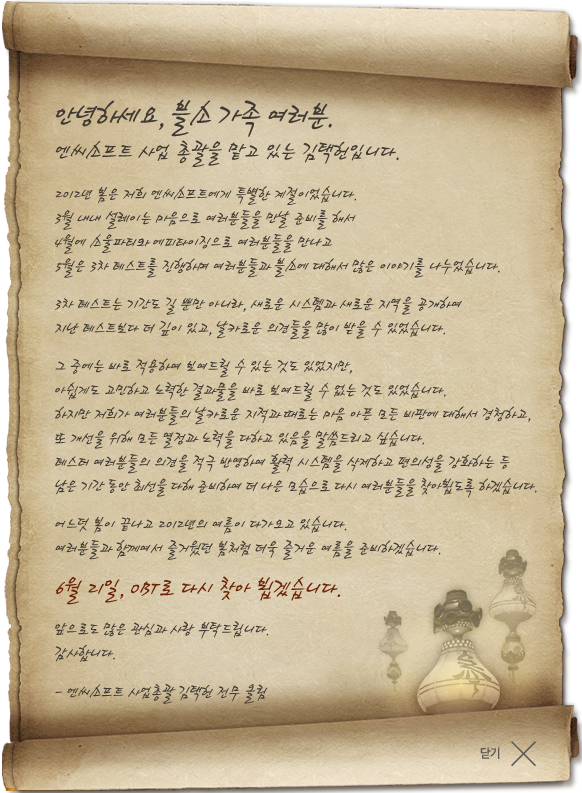 안녕하세요, 블소 가족 여러분.
엔씨소프트 사업 총괄을 맡고 있는 김택헌입니다.
2012년 봄은 저희 엔씨소프트에게 특별한 계절이었습니다.
3월 내내 설레이는 마음으로 여러분들을 만날 준비를 해서
4월에 소울파티와 에피타이징으로 여러분들을 만나고
5월은 3차 테스트를 진행하며 여러분들과 블소에 대해서 많은 이야기를 나누었습니다.
3차 테스트는 기간도 길 뿐만 아니라, 새로운 시스템과 새로운 지역을 공개하며
지난 테스트보다 더 깊이 있고, 날카로운 의견들을 많이 받을 수 있었습니다.
그 중에는 바로 적용하여 보여드릴 수 있는 것도 있었지만,
아쉽게도 고민하고 노력한 결과물을 바로 보여드릴 수 없는 것도 있었습니다.
하지만 저희가 여러분들의 날카로운 지적과 때로는 마음 아픈 모든 비판에 대해서 경청하고,
또 개선을 위해 모든 열정과 노력을 다하고 있음을 말씀드리고 싶습니다.
테스터 여러분들의 의견을 적극 반영하여 활력 시스템을 삭제하고 편의성을 강화하는 등
남은 기간 동안 최선을 다해 준비하여 더 나은 모습으로 다시 여러분들을 찾아뵙도록 하겠습니다.
어느덧 봄이 끝나고 2012년의 여름이 다가오고 있습니다.
여러분들과 함께여서 즐거웠던 봄처럼 더욱 즐거운 여름을 준비하겠습니다.
6월 21일, OBT로 다시 찾아 뵙겠습니다.
앞으로도 많은 관심과 사랑 부탁드립니다.
감사합니다.
- 엔씨소프트 사업총괄 김택헌 전무 올림
닫기